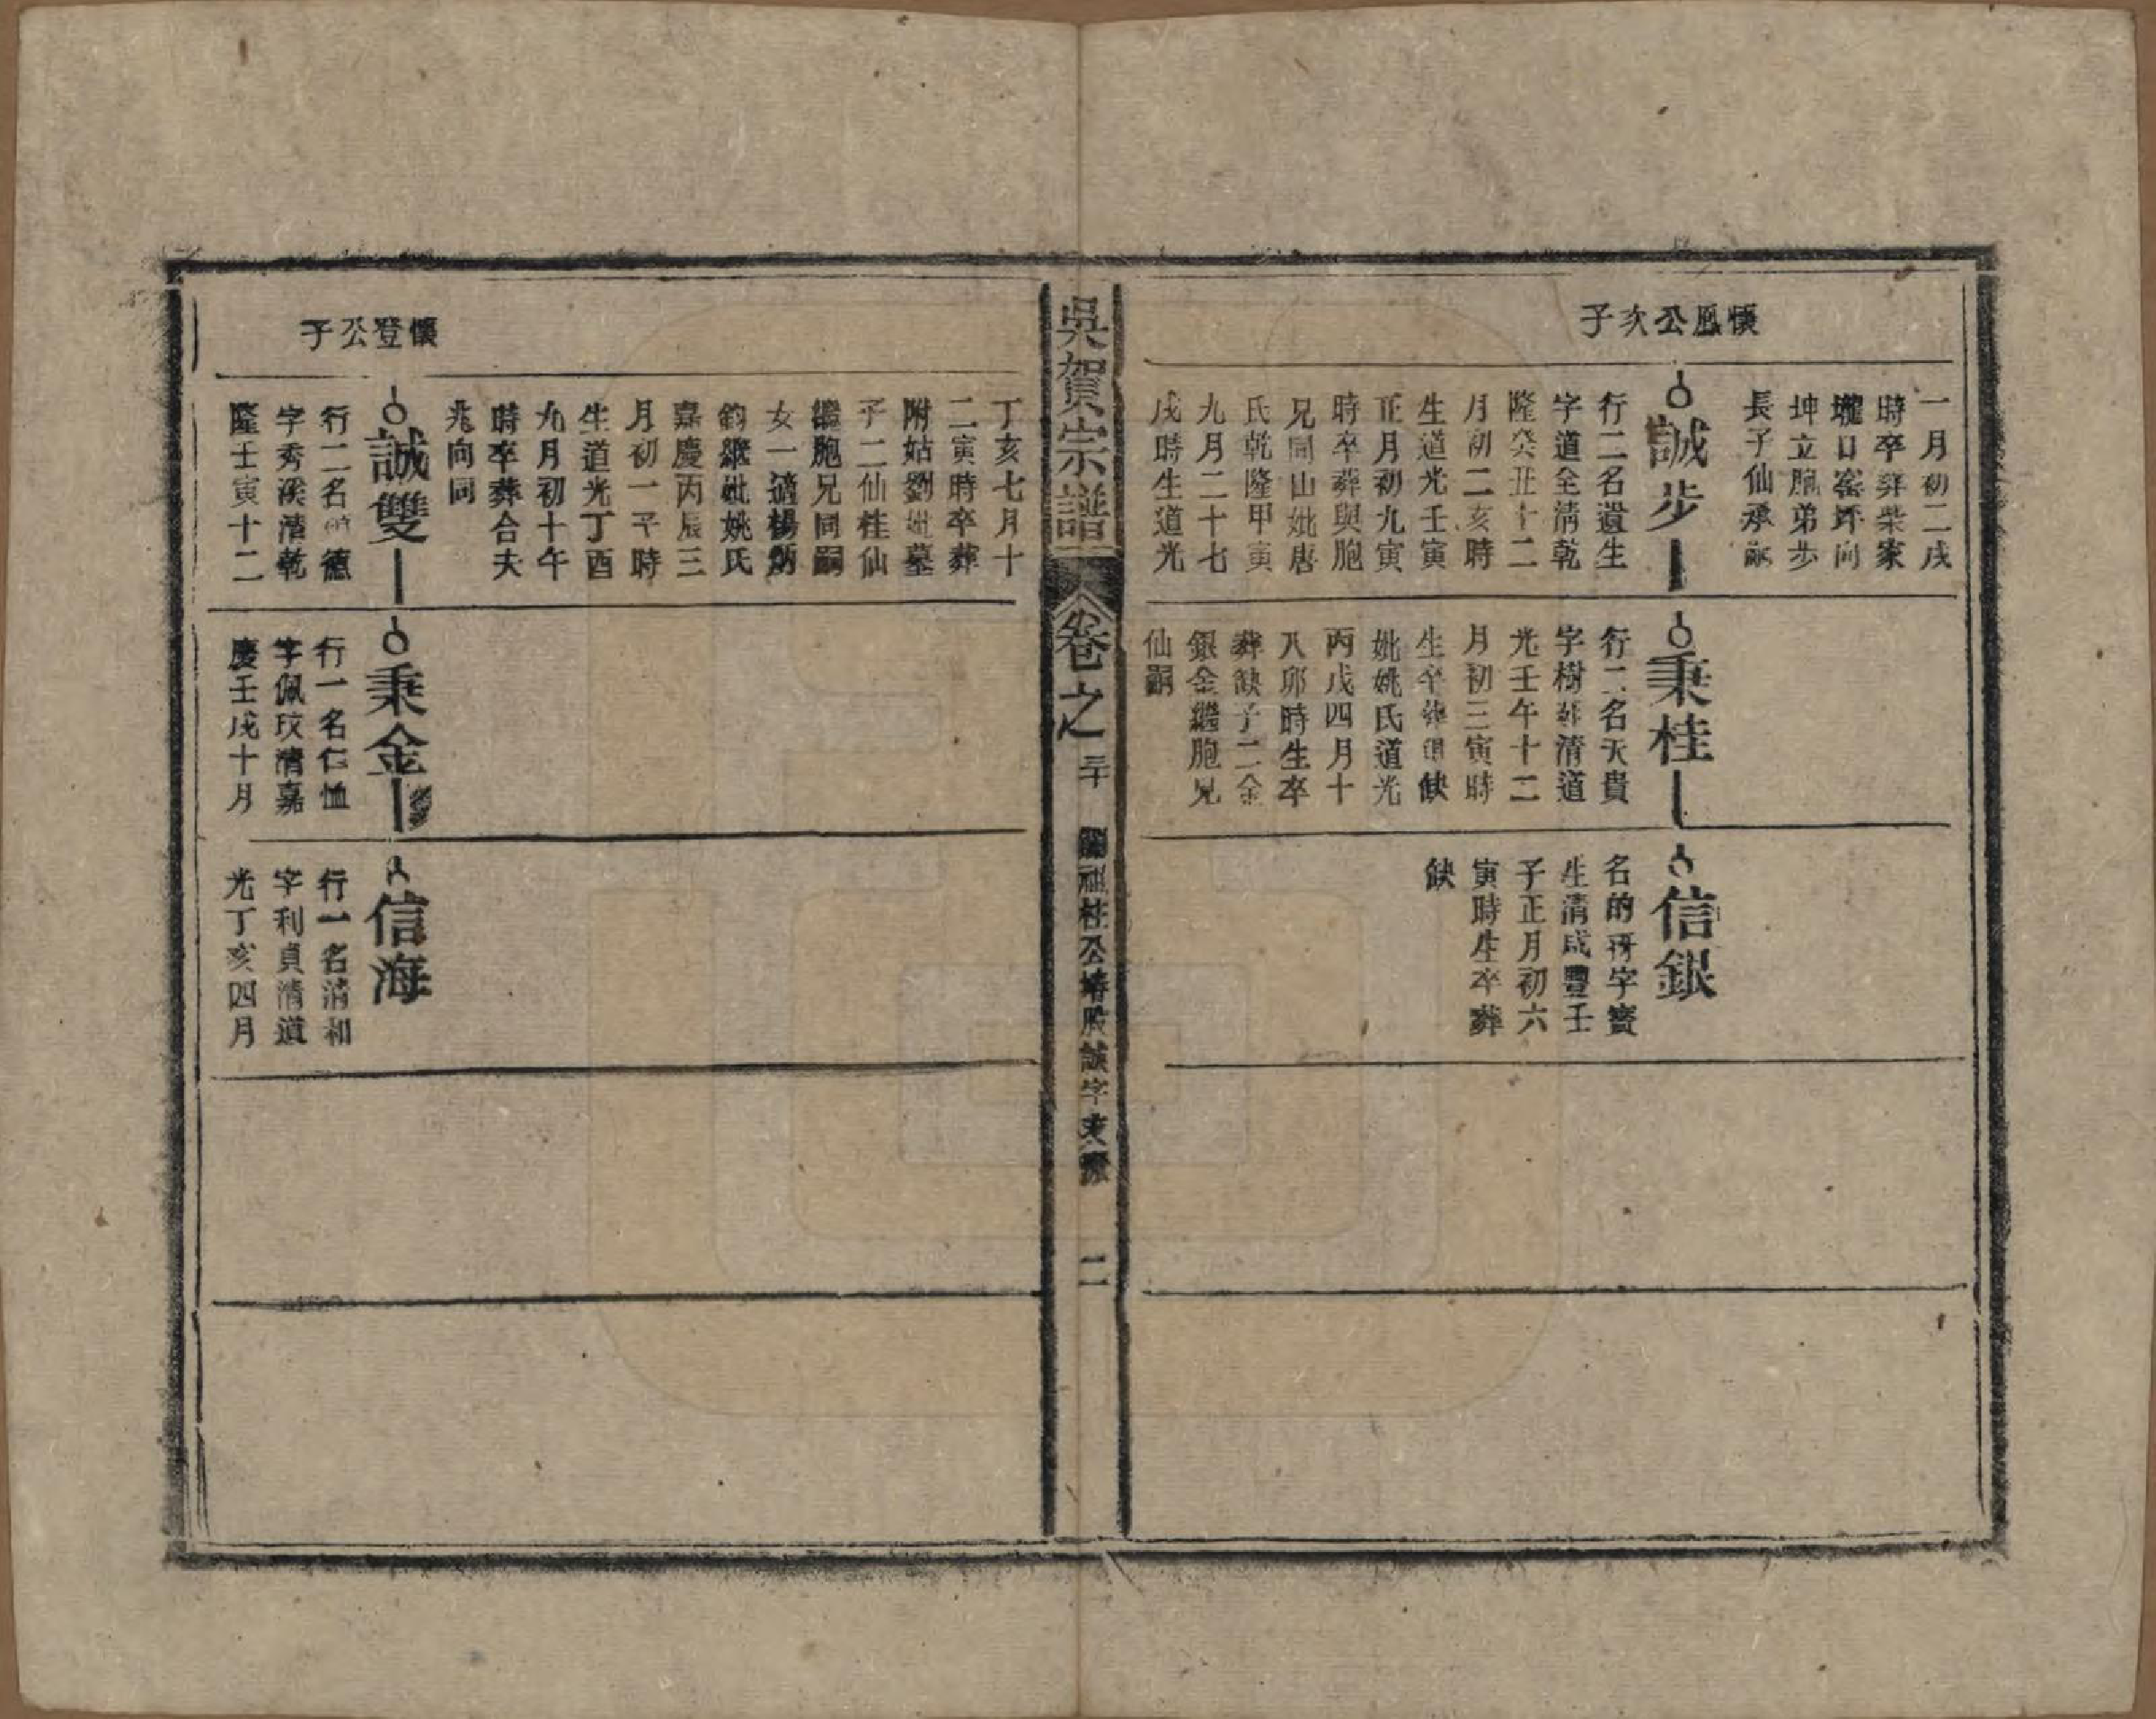 懷鳳公次子
一月初二戌
時卒葬柴家
壠口窑坪向
坤立胞弟步
長子仙承嗣
誠步
行二名遺生
字道全清乾
隆癸丑十二
月初二亥時
生道光壬寅
正月初九寅
時卒葬與胞
兄同山妣唐
氏乾隆甲寅
九月二十七
戌時生道光
秉桂
行二名天貴
字樹 清道
光壬午十二
月初三寅時
生卒葬 缺
妣姚氏道光
丙戌四月十
八卯時生卒
葬缺子二金
銀金繼胞兄
仙嗣
信銀
名的 字寶
生清咸豐壬
子正月初六
寅時生卒葬
缺
吳賀宗譜
卷之三十
祖柱公 股誠字支 
二
懷登公子
丁亥七月十
二寅時卒葬
附姑劉妣墓
子二仙桂仙
繼胞兄同嗣
女一適楊炳
鈞繼妣姚氏
嘉慶丙辰三
月初一 時
生道光丁酉
九月初十午
時卒葬合夫
兆向同
誠雙
行二名 德
字秀溪清乾
隆壬寅十二
秉金
行一名仁恤
字佩玟清嘉
慶壬戌十月
信海
行一名清和
字利貞清道
光丁亥四月